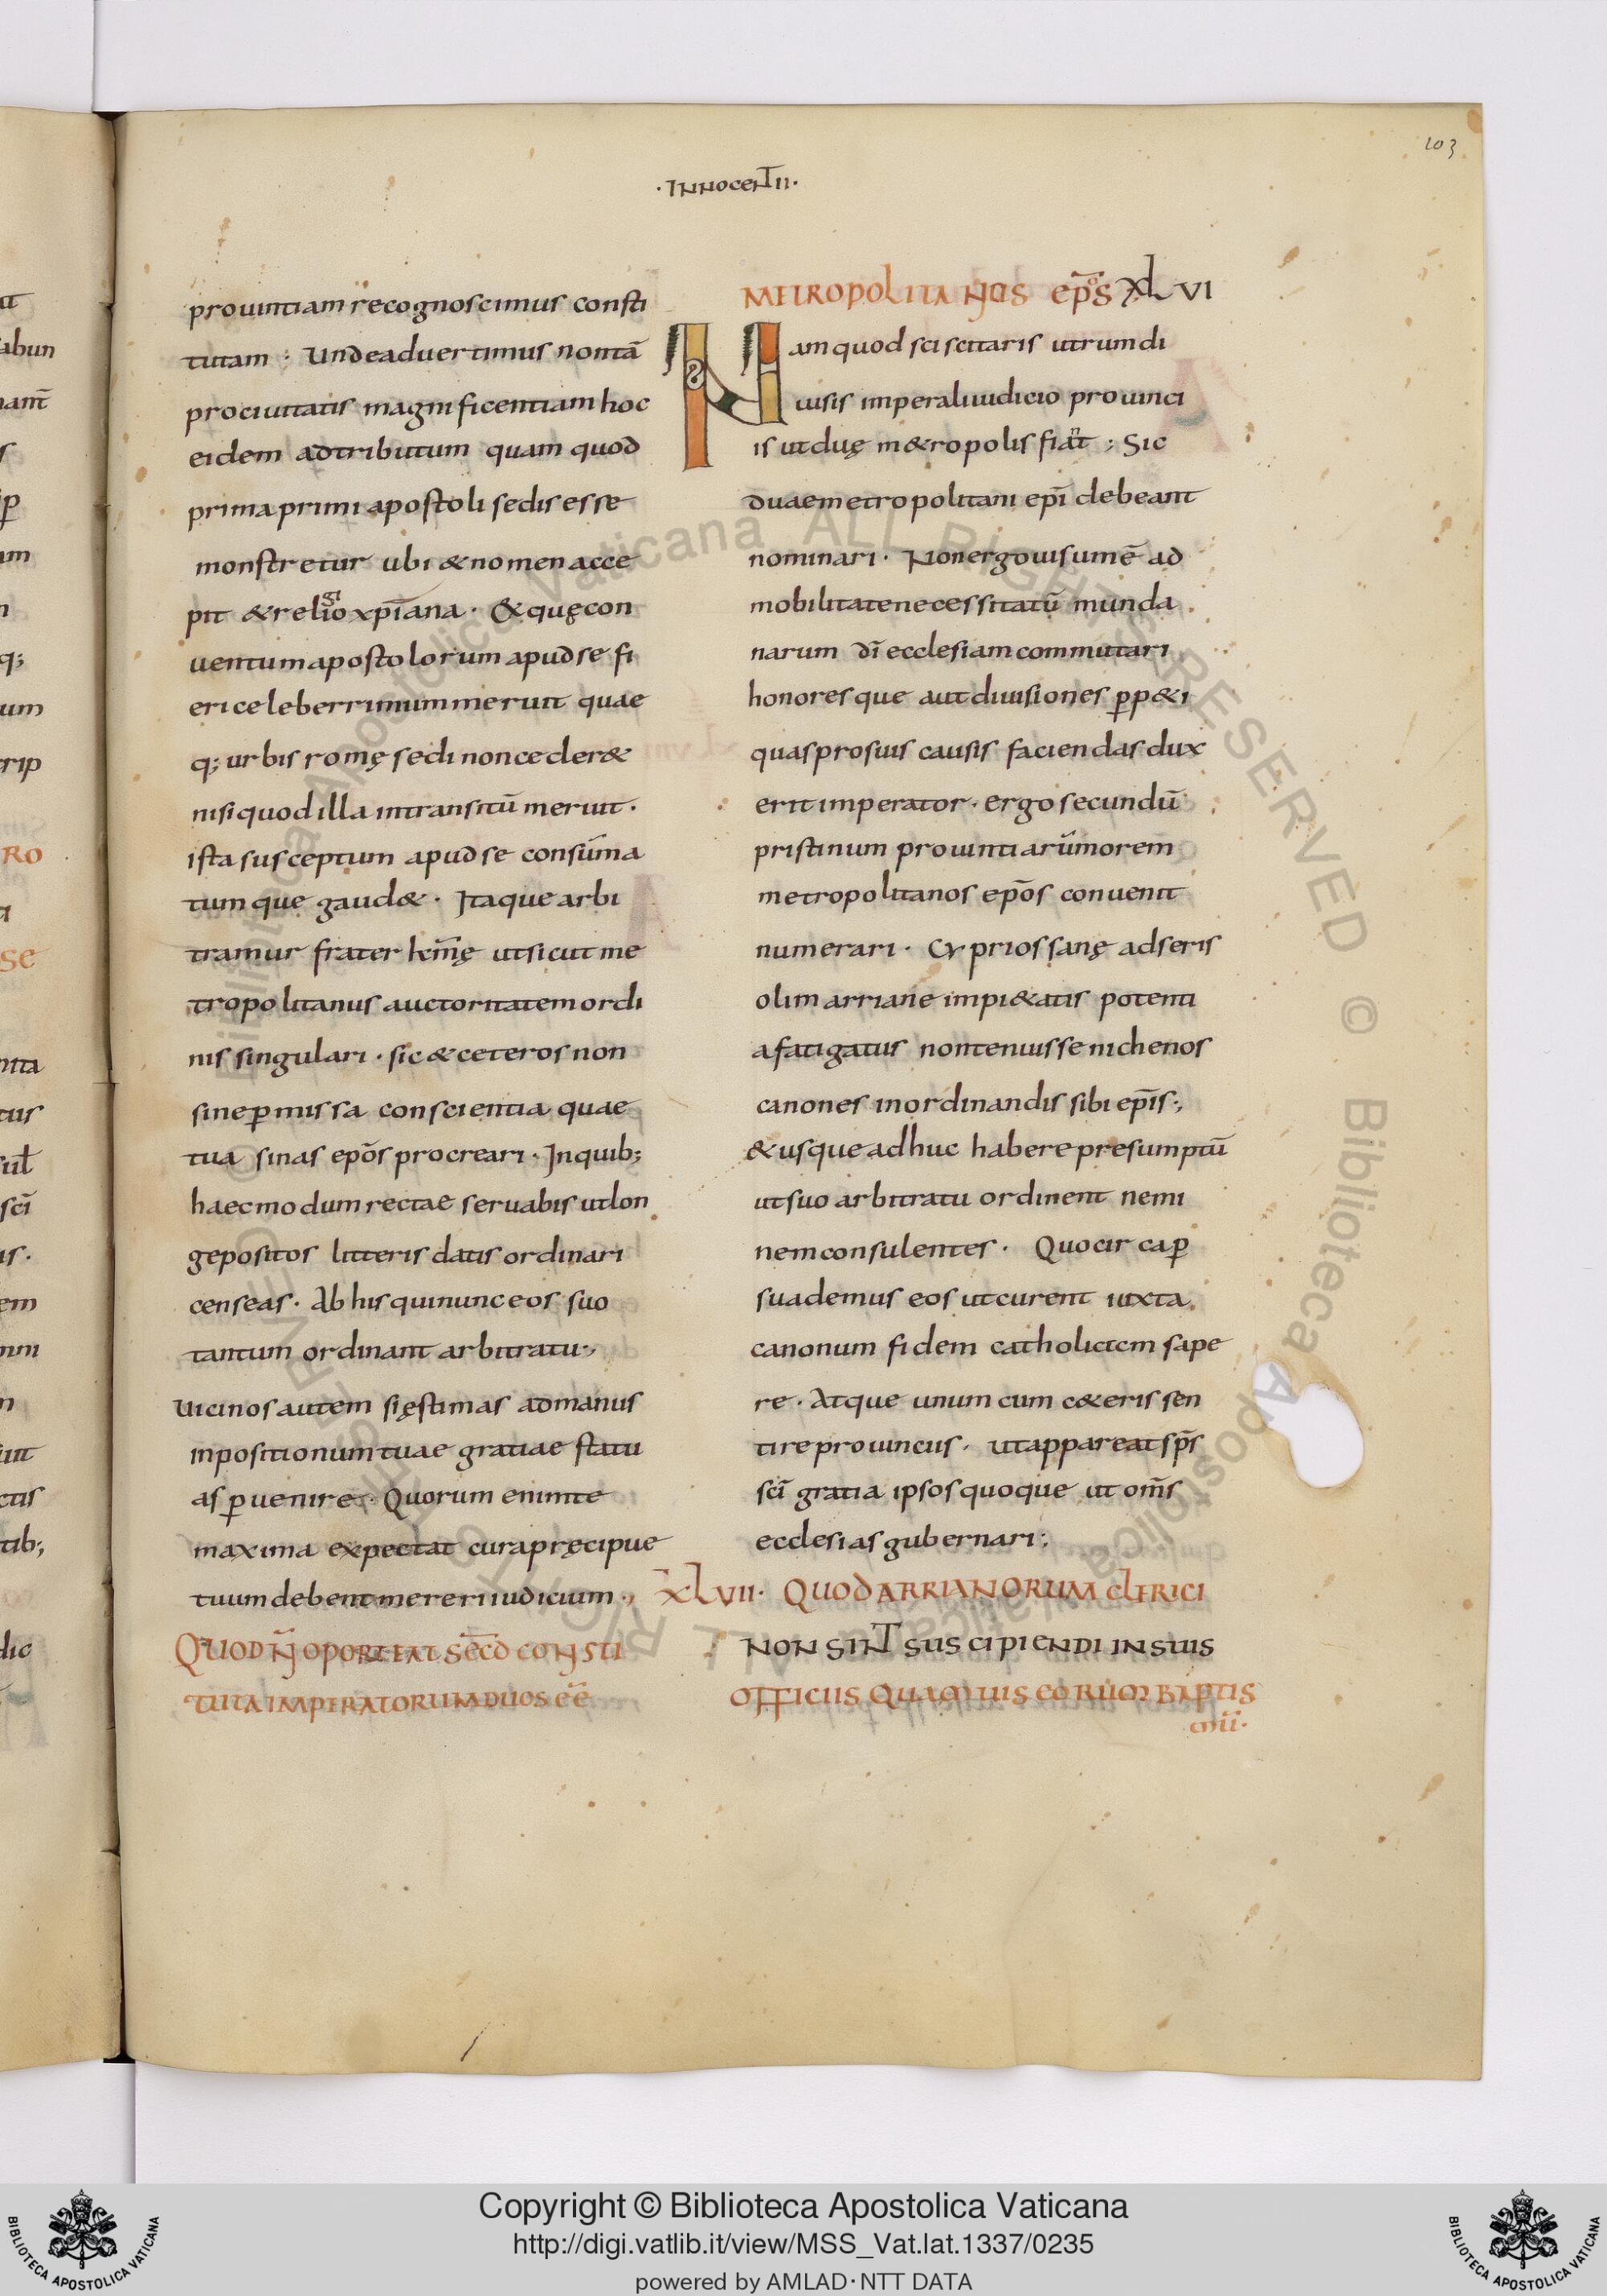 103
·INNOCENTII·
prouintiam recognoscimus consti
tutam : Unde aduertimus non tā
pro ciuitatis magnificentiam hoc
eidem adtributum quam quod
prima primi apostoli sedis esse
monstretur ubi & nomen acce
pit & religio xp̄iana· & quę con
uentum apostolorum apud se fi
eri celeberrimum meruit quae
q; urbis romę sedi non ceder&
nisi quod illa in transitū meruit·
ista susceptum apud se consūma
tumque gaud&· Itaque arbi
tramur frater km̄ę ut sicut me
tropolitanus auctoritatem ordi
nis singulari· sic & ceteros non
sine p̲missa conscientia quae
tua sinas ep̄os procreari· In quib;
haec modum rectae seruabis ut lon
ge positos litteris datis ordinari
censeas· Ab his qui nunc eos suo
tantum ordinant arbitratu·,
Uicinos autem si ęstimas ad manus
inpositionum tuae gratiae statu
as p̲uenire· Quorum enim te
maxima expectat cura pręcipue
tuum debent mereri iudicium·,
QUOD N̄ OPORTEAT SEC̄D CONSTI
TUTA IMPERATORUM DUOS ĒĒ
METROPOLITANOS EP̄OS XLVI
Nam quod sciscitaris utrum di
uisis imperali iudicio prouinci
is ut duę m&ropolis fiant ; Sic
duae metropolitani ep̄i debeant
nominari· Non ergo uisum ē ad
mobilitate necessitatū munda
narum dī ecclesiam commutari
honoresque aut diuisiones p̲p&i
quas pro suis causis faciendas dux
erit imperator· ergo secundū
pristinum prouintiarūm morem
metropolitanos ep̄os conuenit
numerari· Cyprios sanę adseris
olim arriane impi&atis potenti
a fatigatus non tenuisse nichenos
canones in ordinandis sibi ep̄is·,
& usque adhuc habere presumptū
ut suo arbitratu ordinent nemi
nem consulentes· Quocirca p̲
suademus eos ut curent iuxta
canonum fidem catholicicm sape
re· Atque unum cum c&eris sen
tire prouinciis· ut appareat sp̄s
sc̄i gratia ipsos quoque ut om̄s
ecclesias gubernari;
XLVII· QUOD ARRIANORUM CLERICI
NON SINT SUSCIPIENDI IN SUIS
OFFICIIS QUAMUIS EORUM BAPTIS
Copyright © Biblioteca Apostolica Vaticana
http://digi.vatlib.it/view/MSS_Vat.lat.1337/0235
powered by AMLAD·NTT DATA